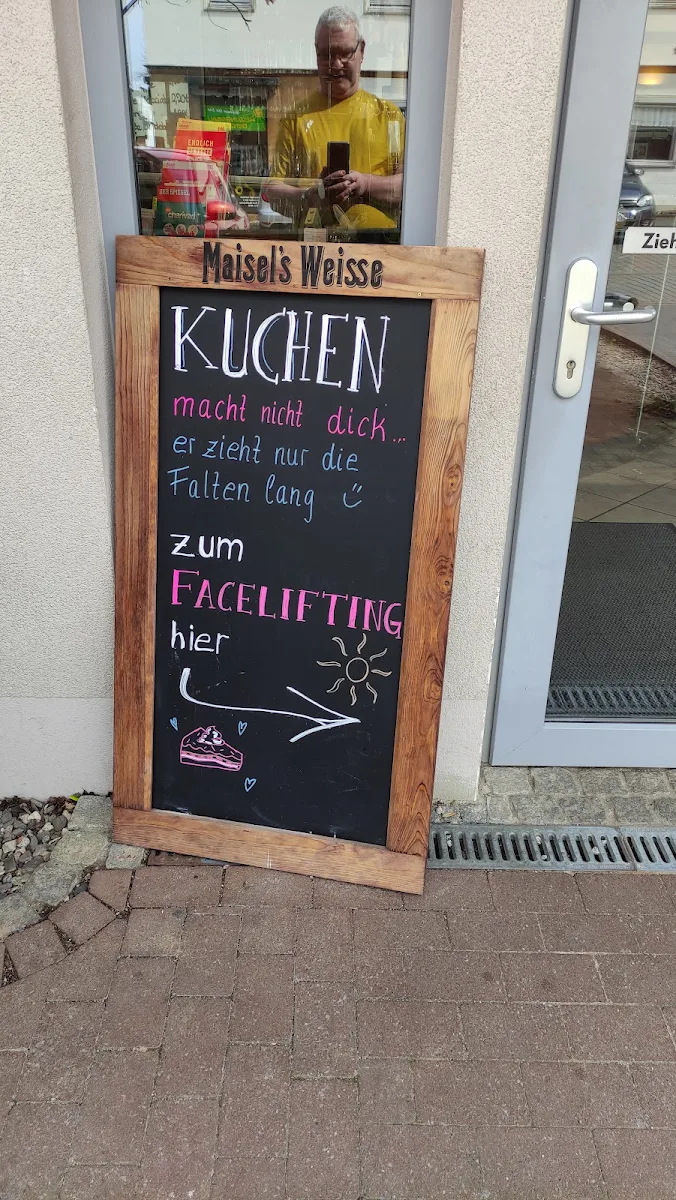 ENDLICH
DER SPIEGEL
Maisel's Weisse
KUCHEN
macht nicht dick...
er zieht nur die
Falten lang ㋡
zum
FACELIFTING
hier
Zieh